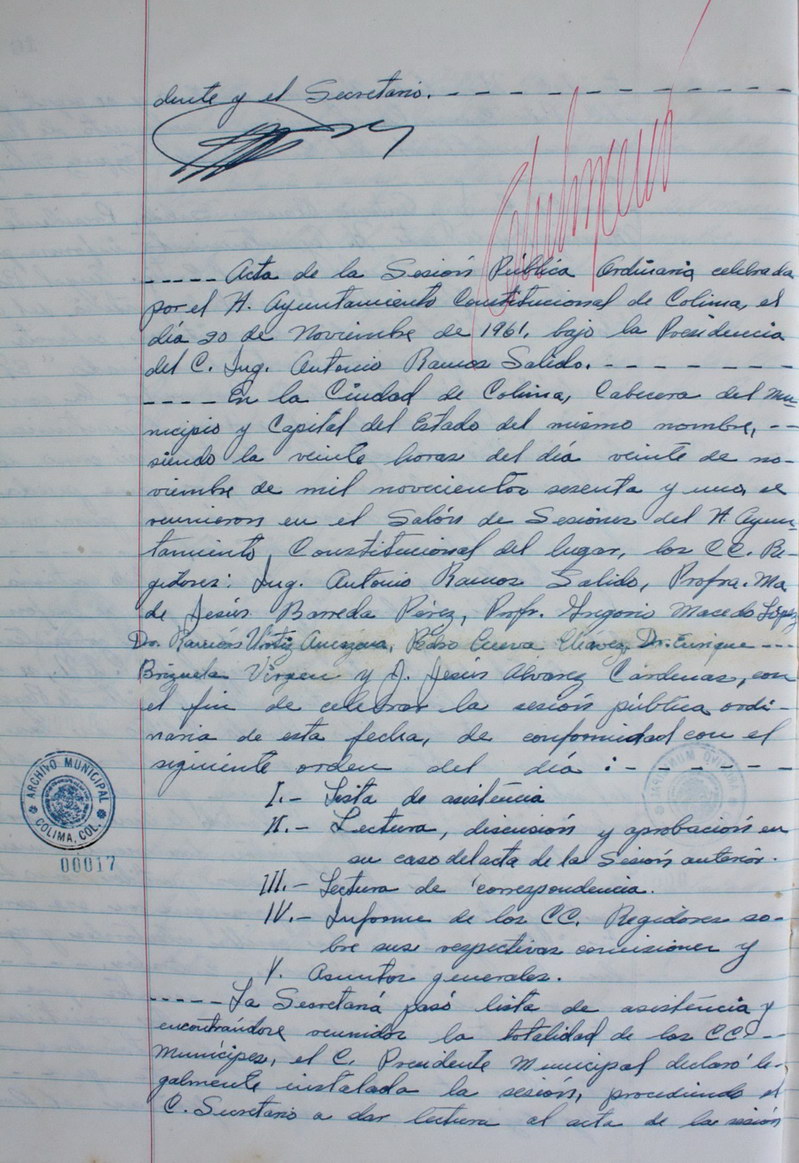 dente y el Secretario. - - - - - - - - - - - - -
- - - - - Acta de la Sesión Pública Ordinaria celebrada
por el H. Ayuntamiento Constitucional de Colima, el
día 20 de Noviembre de 1961, bajo la Presidencia
del C. Ing. Antonio Ramos Salido. - - - - - - - -
- - - - En la Ciudad de Colima, Cabecera del Mu-
nicipio y Capital del Estado del mismo nombre, --
siendo la veinte horas del día veinte de no-
viembre de mil novecientos sesenta y uno, se
reunieron en el Salón de Sesiones del H. Ayun-
tamiento, Constitucional del lugar, los CC. Re-
gidores: Ing. Antonio Ramos Salido, Profra. Ma
de Jesús Barreda Pérez, Profr. Gregorio Macedo López
Dr. Ramón Pedro Cueva Chávez, Dr. Enrique ---
Brizuela Virgen y J. Jesús Alvarez Cárdenas, con
el fin de celebrar la sesión pública ordi-
naria de esta fecha, de conformidad con el
siguiente orden del día : - - - - - -
I.- Lista de asistencia
II.- Lectura, discusión y aprobación en
su caso del acta de la Sesión anterior.
III.- Lectura de correspondencia.
IV.- Informe de los CC. Regidores so-
bre sus respectivas comisiones y
V. Asuntos generales.
- - - - - La Secretaría pasó lista de asistencia y
encontrándose reunidos la totalidad de los CC. --
Munícipes, el C. Presidente Municipal declaró le-
galmente instalada la sesión, procediendo el
C. Secretario a dar lectura al acta de la sesión
ARCHIVO MUNICIPAL
COLIMA, COL.
00017